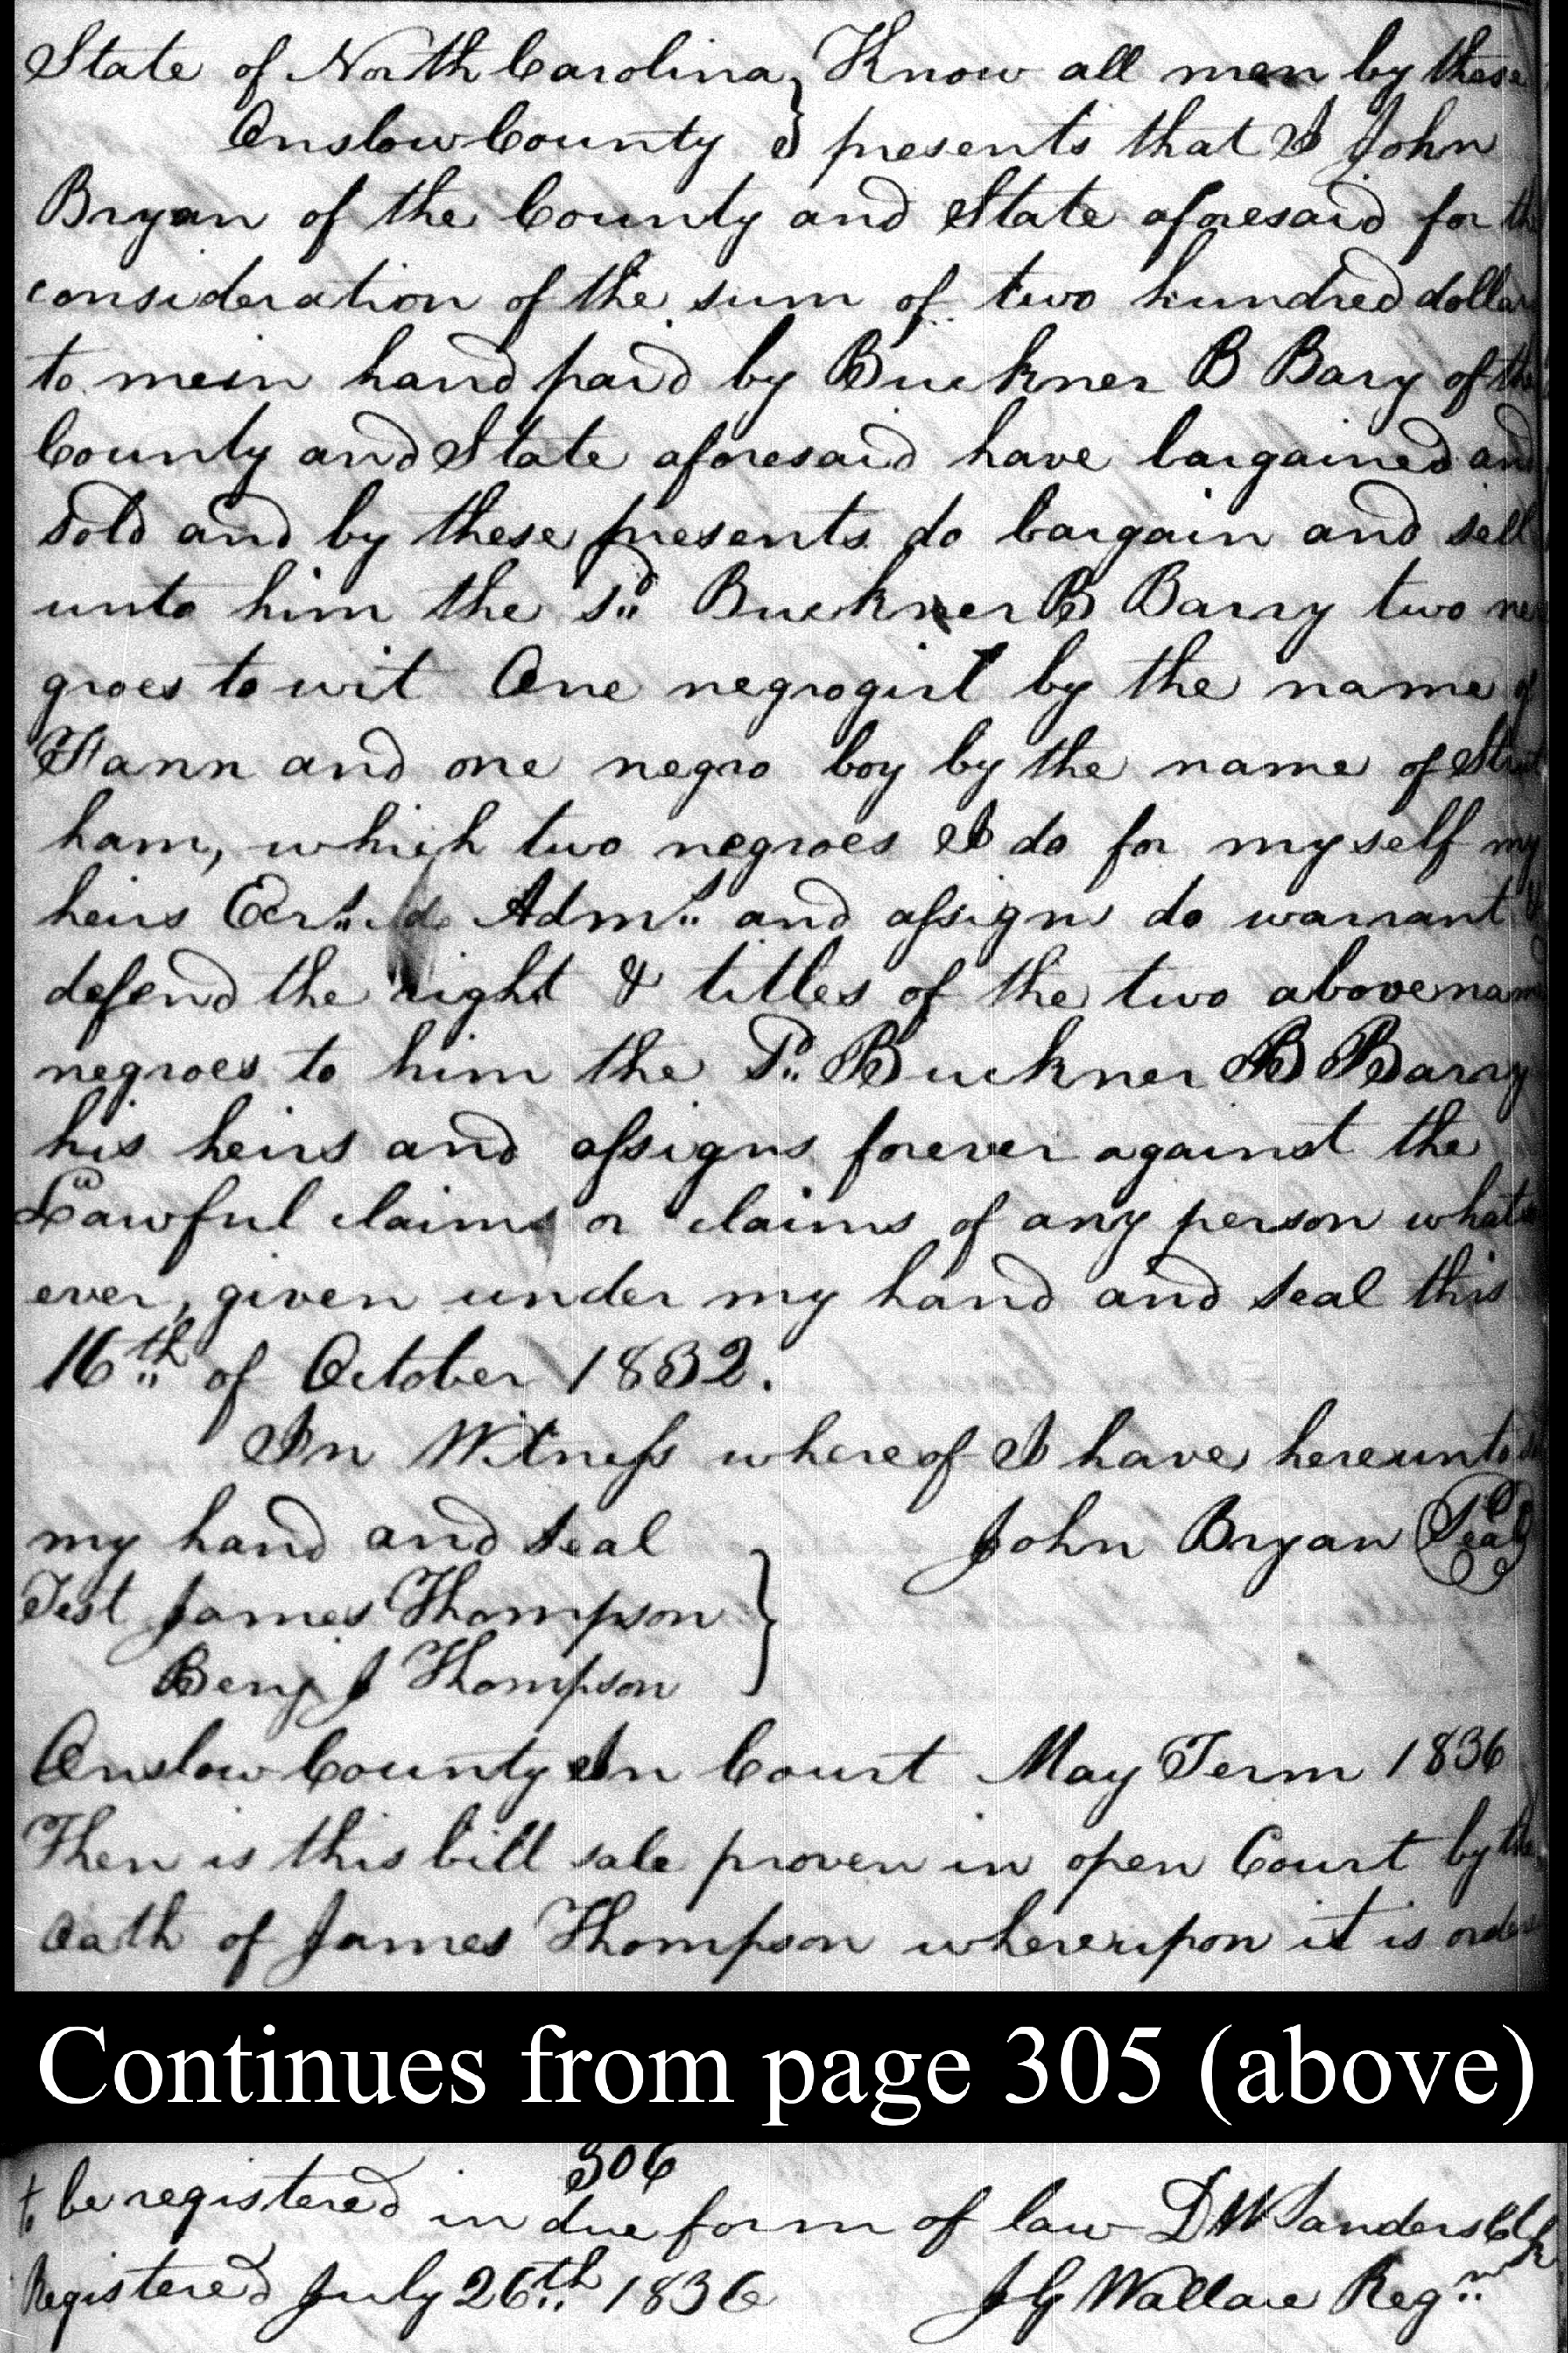 State of North Carolina } Know all men by these
Onslow County } presents that I John
Bryan of the County and State aforesaid for th
consideration of the sum of two hundred dollar
to me in hand paid by Buckner B Bary of the
County and State aforesaid have bargained and
sold and by these presents do bargain and sell
unto him the sd Buckner B Barry two ne
groes to wit One negro girl by the name of
Hann and one negro boy by the name of
ham, which two negroes I do for myself my
heirs Exrs Adms and assigns do warrant &
defend the right & titles of the two above nam
negroes to him the sd Buckner B Barry
his heirs and assigns forever against the
Lawful claims or claims of any person whatso
ever, given under my hand and seal this
16th of October 1832.
In Witness whereof I have hereunto
my hand and seal John Bryan Seal
Test James Thompson }
Benj J Thompson
Onslow County In Court May Term 1836
Then is this bill sale proven in open Court by the
Oath of James Thompson whereupon it is orde
Continues from page 305 (above)
306
to be registered in due form of law D W Sanders Clk
Registered July 26th 1836 J G Wallace Regr